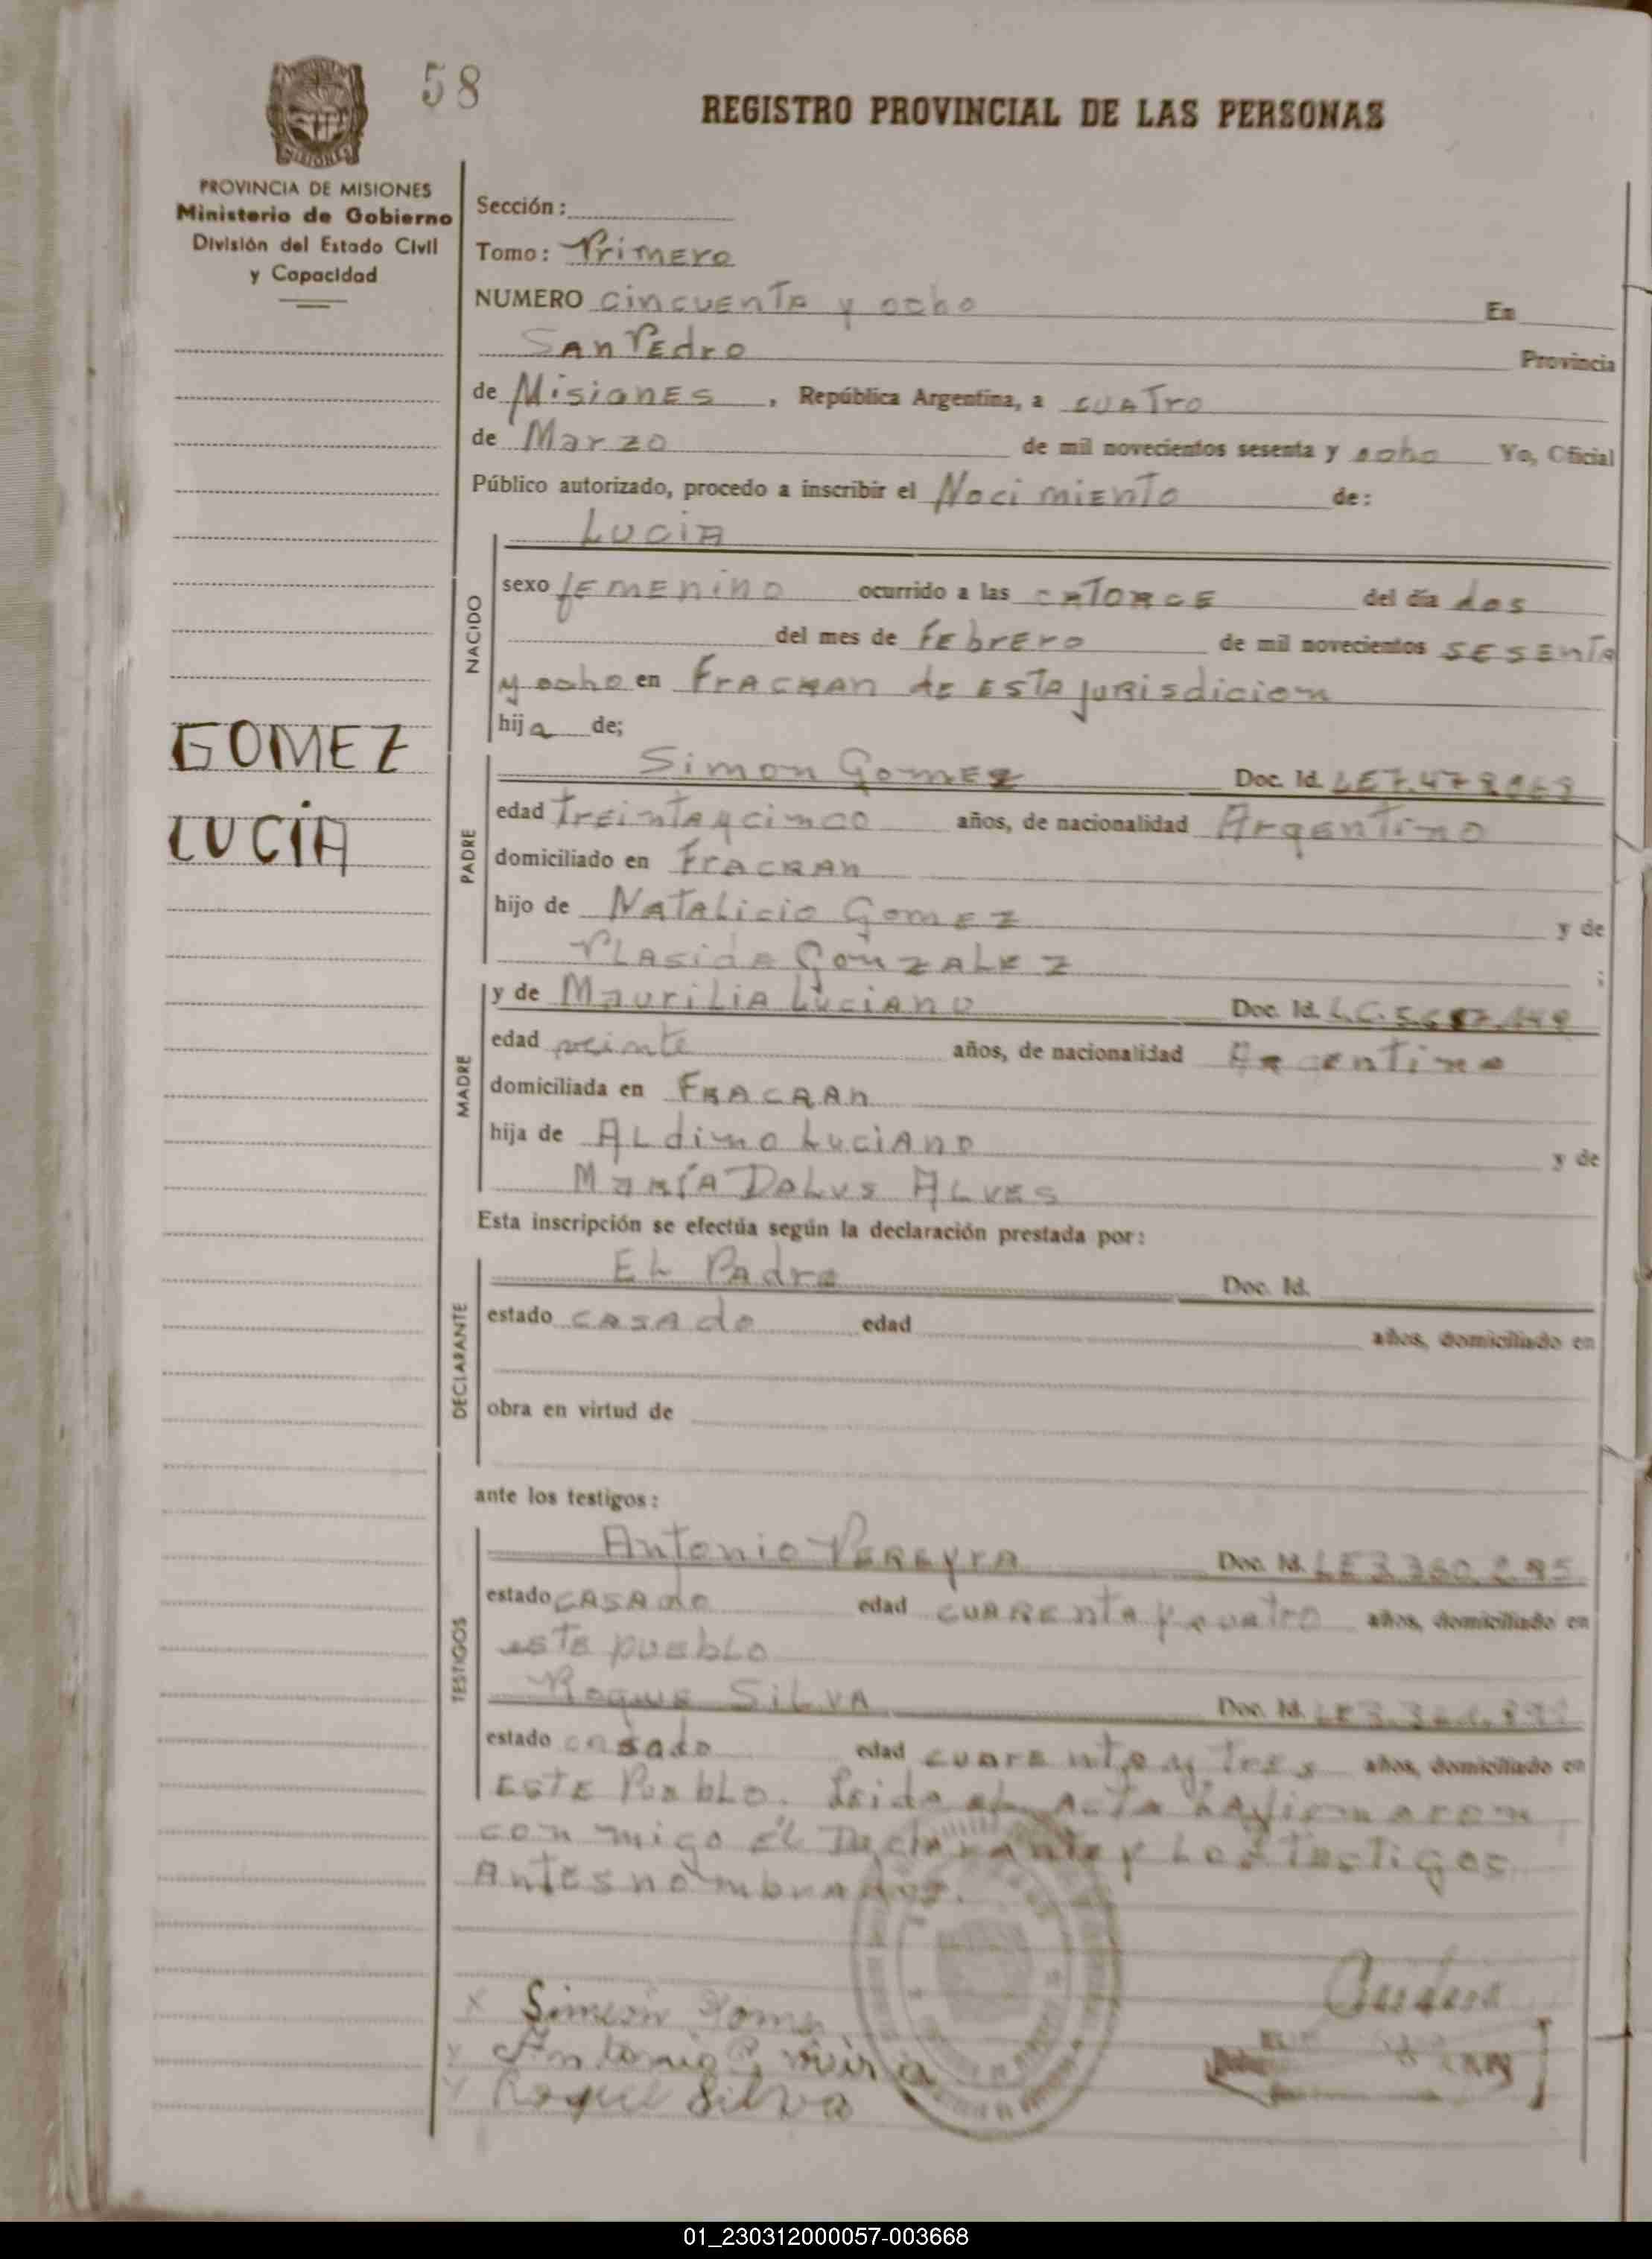 58
REGISTRO PROVINCIAL DE LAS PERSONAS
MISIONES
PROVINCIA DE MISIONES
Ministerio de Gobierno
División del Estado Civil
y Capacidad
Sección:
Tomo: Primero
NUMERO cincuenta y ocho En
San Pedro Provincia
de Misiones, República Argentina, a cuatro
de Marzo de mil novecientos sesenta y ocho Yo, Oficial
Público autorizado, procedo a inscribir el Nacimiento de:
Lucia
NACIDO
sexo femenino ocurrido a las catorce del día dos
del mes de Febrero de mil novecientos sesenta
y ocho en Fracran de esta jurisdicion
hija de;
GOMEZ
LUCÍA
PADRE
Simon Gomez Doc. Id. LE 7.47
edad treinta y cinco años, de nacionalidad Argentino
domiciliado en Fracran
hijo de Natalicio Gomez y de
Plasida Gonzalez ;
MADRE
y de Maurilia Luciano Doc. Id. L.C.
edad veinte años, de nacionalidad Argentina
domiciliada en Fracran
hija de Aldino Luciano y de
María Dalus Alves
Esta inscripción se efectúa según la declaración prestada por:
DECLARANTE
El Padre Doc. Id.
estado casado edad años, domiciliado en
obra en virtud de
ante los testigos:
TESTIGOS
Antonio Pereyra Doc. Id. LE 3.360.295
estado casado edad cuarenta y cuatro años, domiciliado en
este pueblo
Roque Silva Doc. Id. LE
estado casado edad cuarenta y tres años, domiciliado en
este Pueblo. Leida el acta la firmaron
conmigo el Declarante y Los Testigos
Antes nombrados.
x Simeon Gome
x Antonio
x Roque Silva
01_230312000057-003668